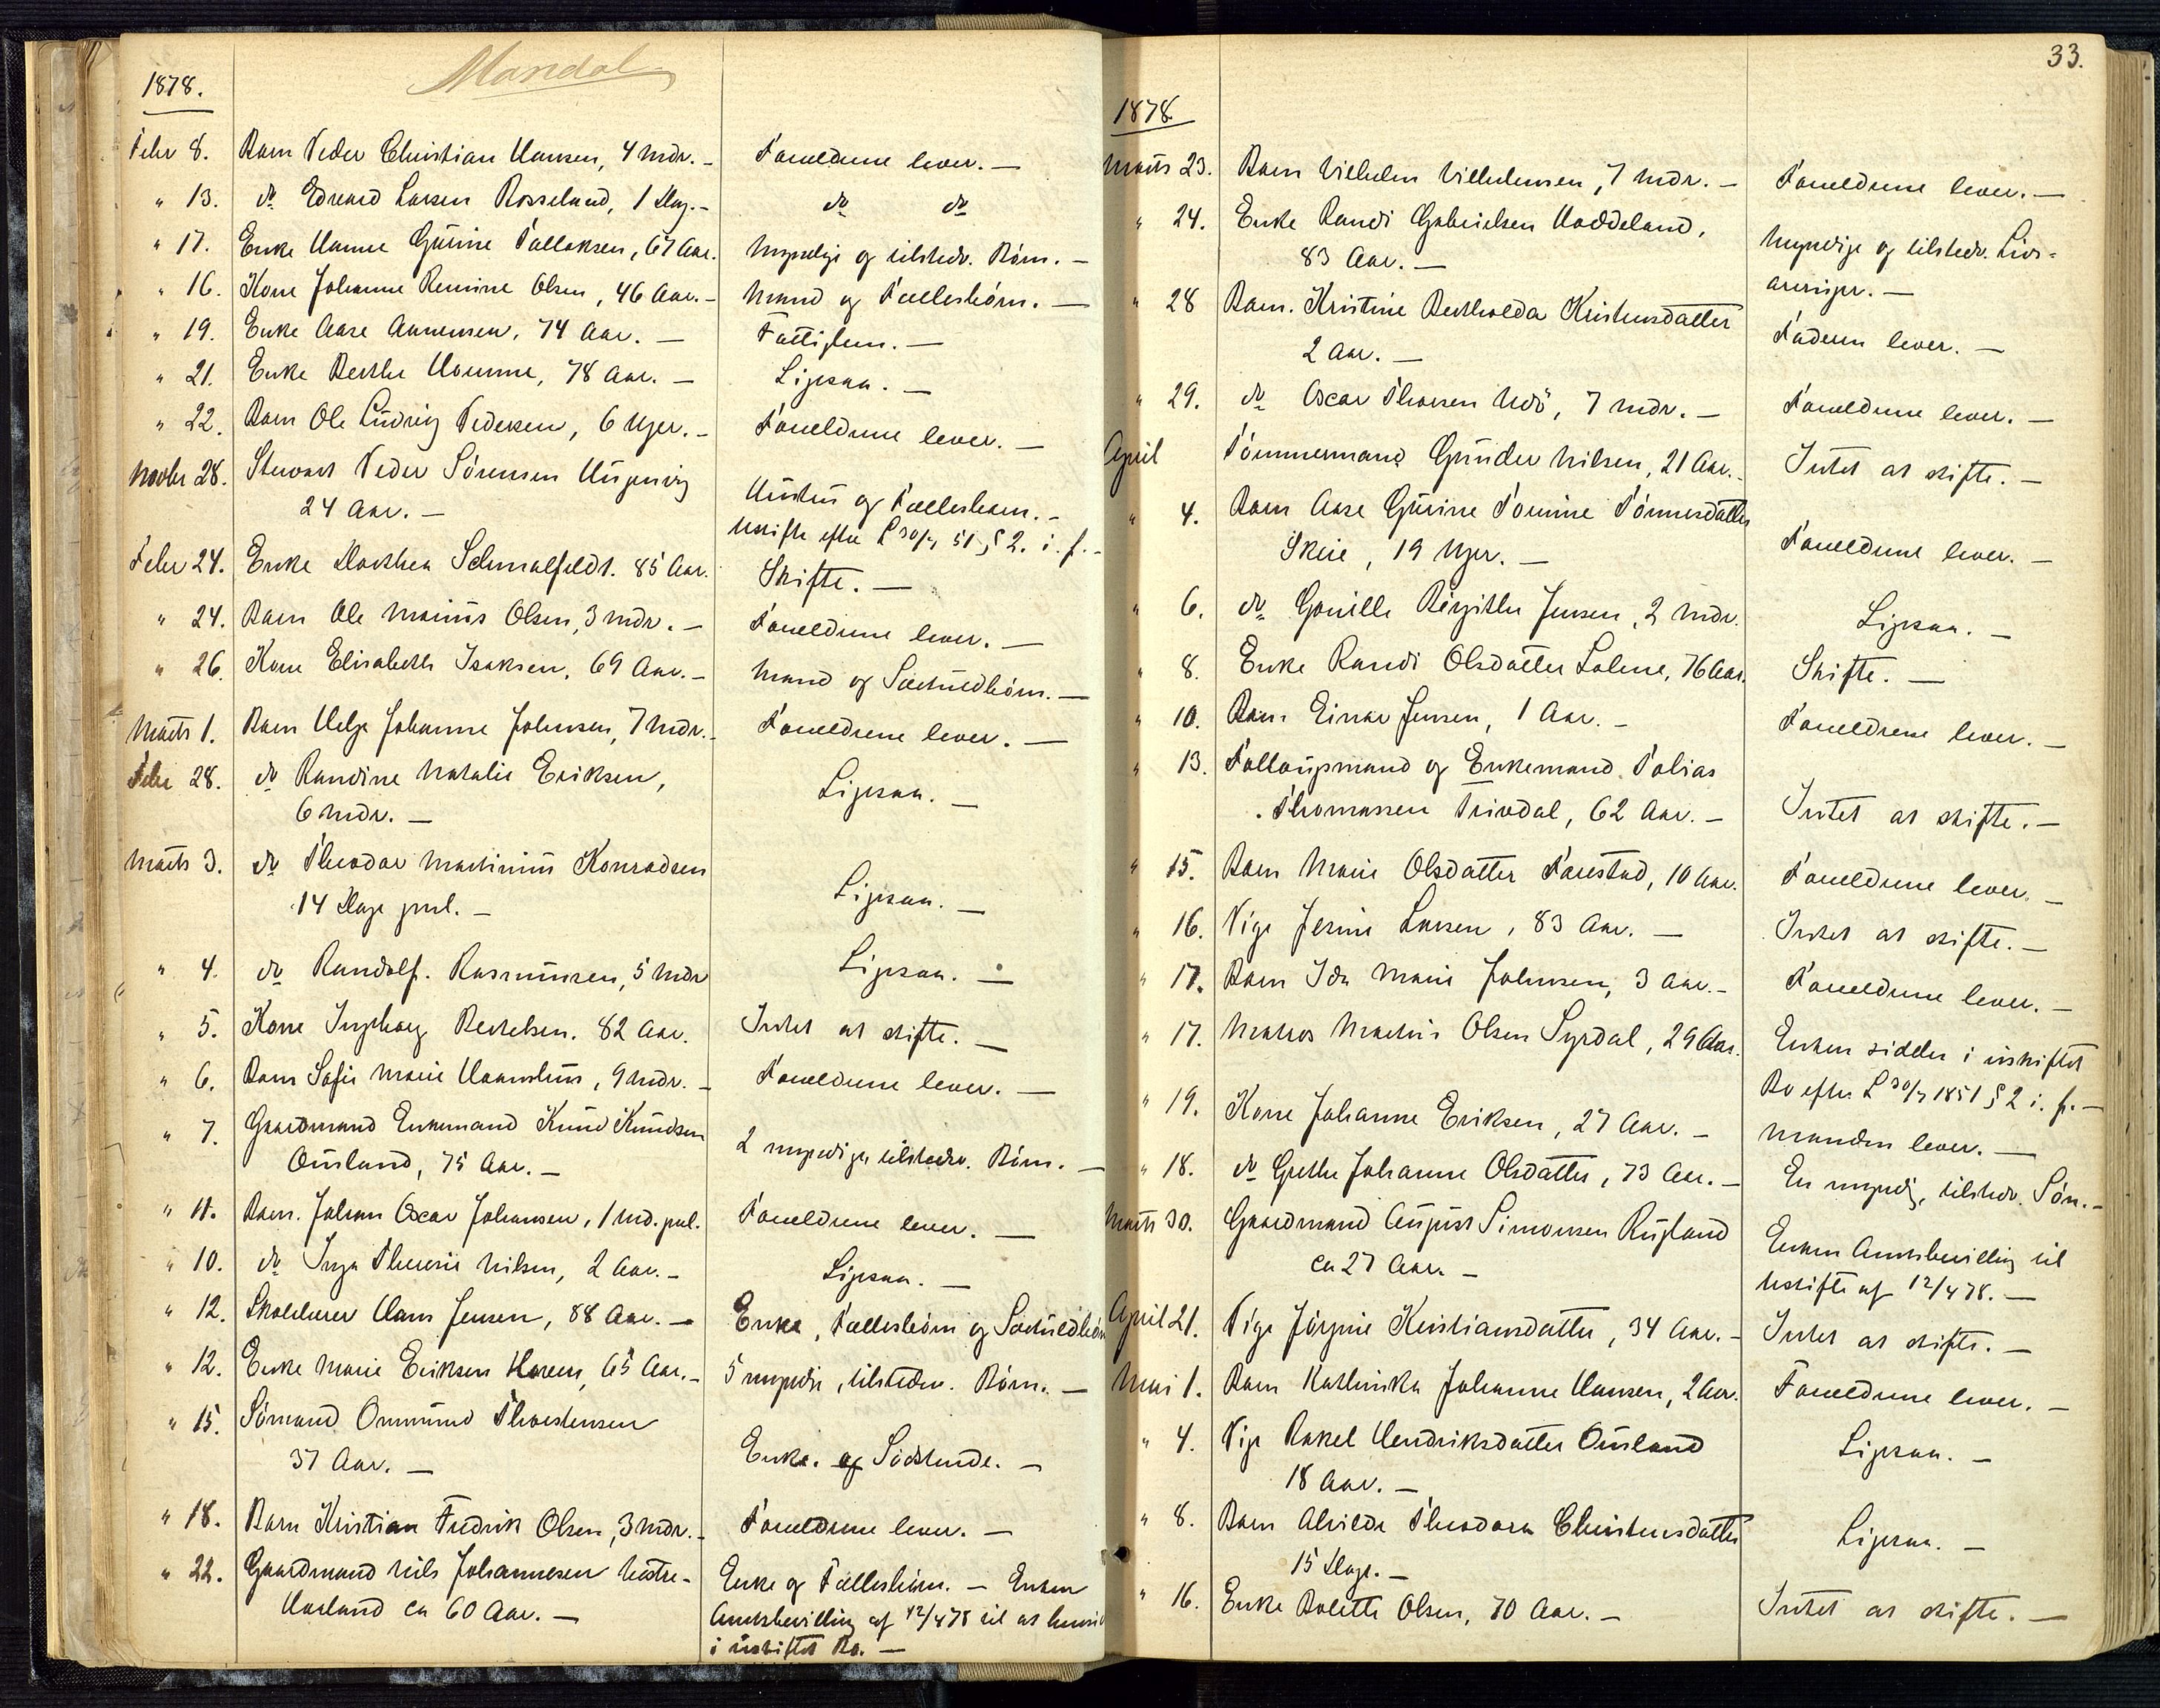 Mandal
1878.
Febr 8. Barn Peder Christian Hansen, 4 Mdr. — Forældrene lever. —
" 13. do Edvard Larsen Rosseland, 1 Dag. — do do
" 17. Enke Hanne Gurine Tallaksen, 67 Aar. Myndige og tilstedv. Børn. —
" 16. Kone Johanne Remine Olsen, 46 Aar. — Mand og Fællesbørn. —
" 19. Enke Aase Aanensen, 74 Aar. — Fattiglem. —
" 21. Enke Berthe Homme, 78 Aar. — Ligesaa. —
" 22. Barn Ole Ludvig Pedersen, 6 Uger. — Forældrene lever. —
Novbr 28. Stuvart Peder Sørensen Ugjevig
24 Aar. — Hustru og Fællesbarn. —
Uskifte efter L 30/7 51 § 2. i. f. —
Febr 24. Enke Dorthea Schmalfeldt. 85 Aar. Skifte. —
" 24. Barn Ole Marius Olsen, 3 Mdr. — Forældrene lever. —
" 26. Kone Elisabeth Isaksen, 69 Aar. — Mand og Særkuldbørn. —
Marts 1. Barn Helge Johanne Johnsen, 7 Mdr. — Forældrene lever. —
Febr 28. do Randine Natalie Eriksen,
6 Mdr. — Ligesaa. —
Marts 3. do Theodor Martinius Konradsen
14 Dage gml. — Ligesaa. —
" 4. do Randolf Rasmussen, 5 Mdr Ligesaa. —
" 5. Kone Ingeborg Bertelsen. 82 Aar. Intet at skifte. —
" 6. Barn Sofie Marie Haanshus, 9 Mdr. — Forældrene lever. —
" 7. Gaardmand Enkemand Knud Knudsen
Ousland, 75 Aar. — 2 myndige tilstedv. Børn. —
" 11. Barn. Johan Oscar Johansen, 1 Md. gml. Forældrene lever. —
" 10. do Inga Theresie Nilsen, 2 Aar. — Ligesaa. —
" 12. Skolelærer Hans Jensen, 88 Aar. — Enke, Fællesbørn og Særkuldbørn
" 12. Enke Marie Eriksen 65 Aar. — 5 myndige, tilstedv. Børn. —
" 15. Sømand Ommund Thorstensen
37 Aar. — Enke. og Sødskende. —
" 18. Barn Kristian Fredrik Olsen, 3 Mdr. — Forældrene lever. —
" 22. Gaardmand Nils Johannesen Vestre-
Haaland ca 60 Aar. — Enke og Fællesbørn. — Enken
Amtsbevilling af 12/4 78 til at hensid
i uskiftet Bo. —
33.
1878
Marts 23. Barn Vilhelm Vilhelmsen, 7 Mdr. — Forældrene lever. —
" 24. Enke Randi Gabrielsen Haddeland,
83 Aar. — Myndige og tilstedv. Livs-
arvinger. —
" 28 Barn. Kristine Bertholda Kristensdatter
2 Aar. — Faderen lever. —
" 29. do Oscar Thorsen Udø, 7 Mdr. — Forældrene lever. —
April Tømmermand Gunder Nilsen, 21 Aar. — Intet at skifte. —
" 4. Barn Aase Gurine Tomine Tønnesdatter
Skeie, 19 Uger. — Forældrene lever. —
" 6. do Gunille Birgithe Jensen, 2 Mdr. Ligesaa. —
" 8. Enke Randi Olsdatter Lolene, 76 Aar. Skifte. —
" 10. Barn Einar Jensen, 1 Aar. — Forældrene lever. —
" 13. Fattigmand og Enkemand Tobias
Thomassen Trivdal, 62 Aar. — Intet at skifte. —
" 15. Barn Marie Olsdatter Farestad, 10 Aar. Forældrene lever. —
" 16. Pige Jesine Larsen, 83 Aar. — Intet at skifte. —
" 17. Barn Ida Marie Johnsen, 3 Aar. — Forældrene lever. —
" 17. Matros Martin Olsen Syrdal, 29 Aar. Enken sidder i uskiftet
Bo efter L 30/7 1851 § 2 i. f. —
" 19. Kone Johanne Eriksen, 27 Aar. — Manden lever. —
" 18. do Grethe Johanne Olsdatter, 73 Aar. — En myndig, tilstedv. Søn. —
Marts 30. Gaardmand August Simonsen Rugland
ca 27 Aar. — Enken Amtsbevilling til
Uskifte af 12/4 78. —
April 21. Pige Jørgine Kristiansdatter, 34 Aar. — Intet at skifte. —
Mai 1. Barn Kathinka Johanne Hansen, 2 Aar. Forældrene lever. —
" 4. Pige Rakel Hendriksdatter Ousland
18 Aar. — Ligesaa. —
" 8. Barn Alvilde Theodora Christensdatter
15 Dage. — Ligesaa. —
" 16. Enke Bolette Olsen, 70 Aar. — Intet at skifte. —